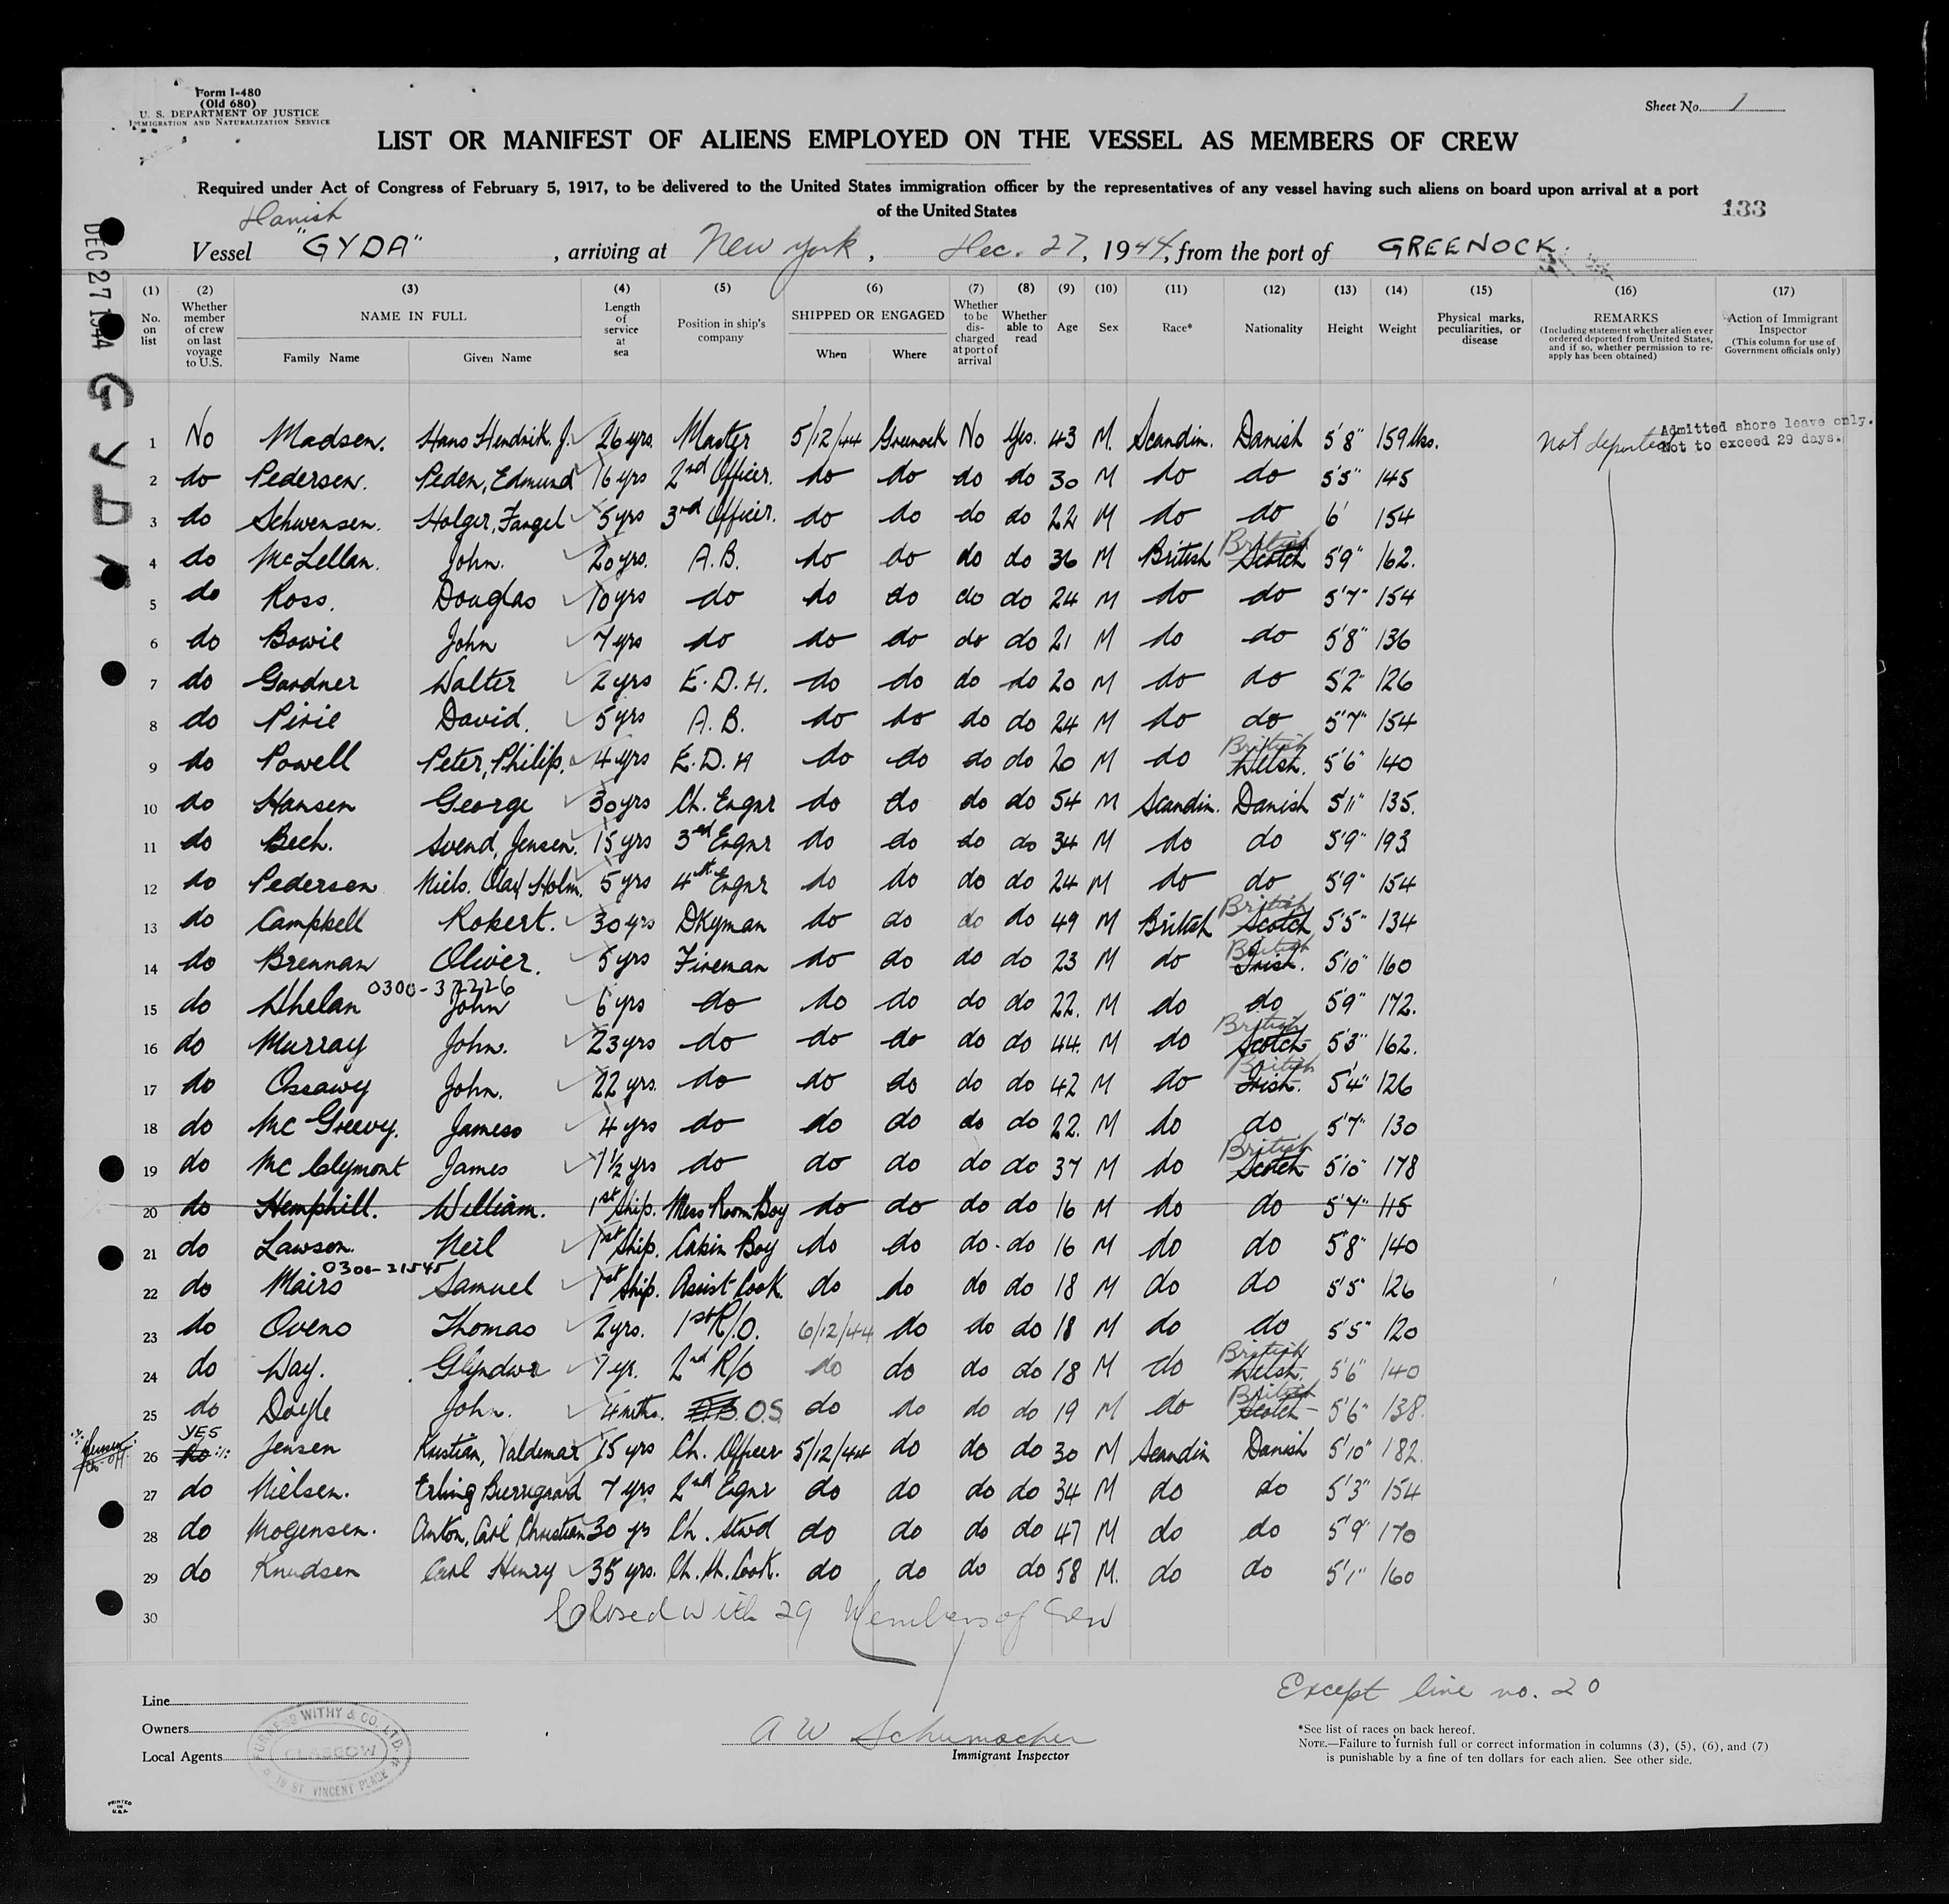 Form I-480
(Old 680)
U. S. DEPARTMENT OF JUSTICE
IMMIGRATION AND NATURALIZATION SERVICE
Sheet No. 1
LIST OR MANIFEST OF ALIENS EMPLOYED ON THE VESSEL AS MEMBERS OF CREW
Required under Act of Congress of February 5, 1917, to be delivered to the United States immigration officer by the representatives of any vessel having such aliens on board upon arrival at a port
of the United States
133
Danish
Vessel "GYDA", arriving at New York, Dec. 27, 1944, from the port of GREENOCK.
DEC 27 1944
GYDA
(1) (2) (3) (4) (5) (6) (7) (8) (9) (10) (11) (12) (13) (14) (15) (16) (17)
No. on list
Whether member of crew on last voyage to U.S.
NAME IN FULL
Family Name Given Name
Length of service at sea
Position in ship's company
SHIPPED OR ENGAGED
When Where
Whether to be discharged at port of arrival
Whether able to read
Age
Sex
Race*
Nationality
Height
Weight
Physical marks, peculiarities, or disease
REMARKS
(Including statement whether alien ever ordered deported from United States, and if so, whether permission to reapply has been obtained)
Action of Immigrant Inspector
(This column for use of Government officials only)
1 No Madsen. Hans Hendrik. J. 26 yrs. Master 5/12/44 Greenock No Yes. 43 M. Scandin. Danish 5'8" 159 lbs. Not deported Admitted shore leave only. Not to exceed 29 days.
2 do Pedersen. Peden, Edmund 16 yrs 2nd Officer. do do do do 30 M do do 5'5" 145
3 do Schwensen. Holger, Fangel 5 yrs 3rd Officer. do do do do 22 M do do 6' 154
4 do McLellan. John. 20 yrs. A.B. do do do do 36 M British Scotch British 5'9" 162.
5 do Ross. Douglas 10 yrs do do do do do 24 M do do 5'7" 154
6 do Bowie John 7 yrs do do do do do 21 M do do 5'8" 136
7 do Gardner Walter 2 yrs E.D.H. do do do do 20 M do do 5'2" 126
8 do Pirie David. 5 yrs A.B. do do do do 24 M do do 5'7" 154
9 do Powell Peter, Philip. 4 yrs E.D.H do do do do 20 M do Welsh. British 5'6" 140
10 do Hansen George 30 yrs Ch. Engnr do do do do 54 M Scandin. Danish 5'11" 135.
11 do Bech. Svend, Jensen. 15 yrs 3rd Engnr do do do do 34 M do do 5'9" 193
12 do Pedersen Niels. Olaf Holm. 5 yrs 4th Engnr do do do do 24 M do do 5'9" 154
13 do Campbell Robert. 30 yrs DKyman do do do do 49 M British Scotch British 5'5" 134
14 do Brennan Oliver. 5 yrs Fireman do do do do 23 M do Irish. British 5'10" 160
0300-37226
15 do Whelan John 6 yrs do do do do do 22. M do do 5'9" 172.
16 do Murray John. 23 yrs do do do do do 44. M do Scotch British 5'3" 162.
17 do Ossawy John. 22 yrs. do do do do do 42 M do Irish. British 5'4" 126
18 do McGreevy. James 4 yrs do do do do do 22. M do do 5'7" 130
19 do McClymont James 1½ yrs do do do do do 37 M do Scotch British 5'10" 178
20 do Hemphill. William. 1st Ship. Mess Room Boy do do do do 16 M do do 5'7" 115
21 do Lawson. Neil 1st Ship. Cabin Boy do do do. do 16 M do do 5'8" 140
0300-31545
22 do Mairs Samuel 1st Ship. Assist Cook. do do do do 18 M do do 5'5" 126
23 do Ovens Thomas 2 yrs. 1st R/O. 6/12/44 do do do 18 M do do 5'5" 120
24 do Way. Glyndwr 1 yr. 2nd R/O do do do do 18 M do Welsh. British 5'6" 140
25 do Doyle John. 4 mths. O.S. do do do do 19 M do Scotch British 5'6" 138.
26 do YES Jensen Kristian, Valdemar 15 yrs Ch. Officer 5/12/44 do do do 30 M Scandin Danish 5'10" 182.
27 do Nielsen. Erling Bierregaard 7 yrs 2nd Engnr do do do do 34 M do do 5'3" 154
28 do Mogensen. Anton, Carl Christian 30 yrs Ch. Stwd do do do do 47 M do do 5'9" 170
29 do Knudsen Carl Henry 35 yrs. Ch. Sh. Cook. do do do do 58 M. do do 5'1" 160
30 Closed with 29 Members of Crew
Except line no. 20
Line
Owners
Local Agents
FURNESS WITHY & CO. LTD.
GLASGOW
19 ST. VINCENT PLACE
A W Schumacher
Immigrant Inspector
*See list of races on back hereof.
NOTE.—Failure to furnish full or correct information in columns (3), (5), (6), and (7)
is punishable by a fine of ten dollars for each alien. See other side.
PRINTED IN U.S.A.